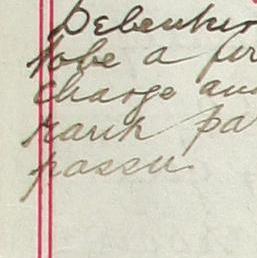 Debentur
to be a fir
charge and
rank pa
passu.